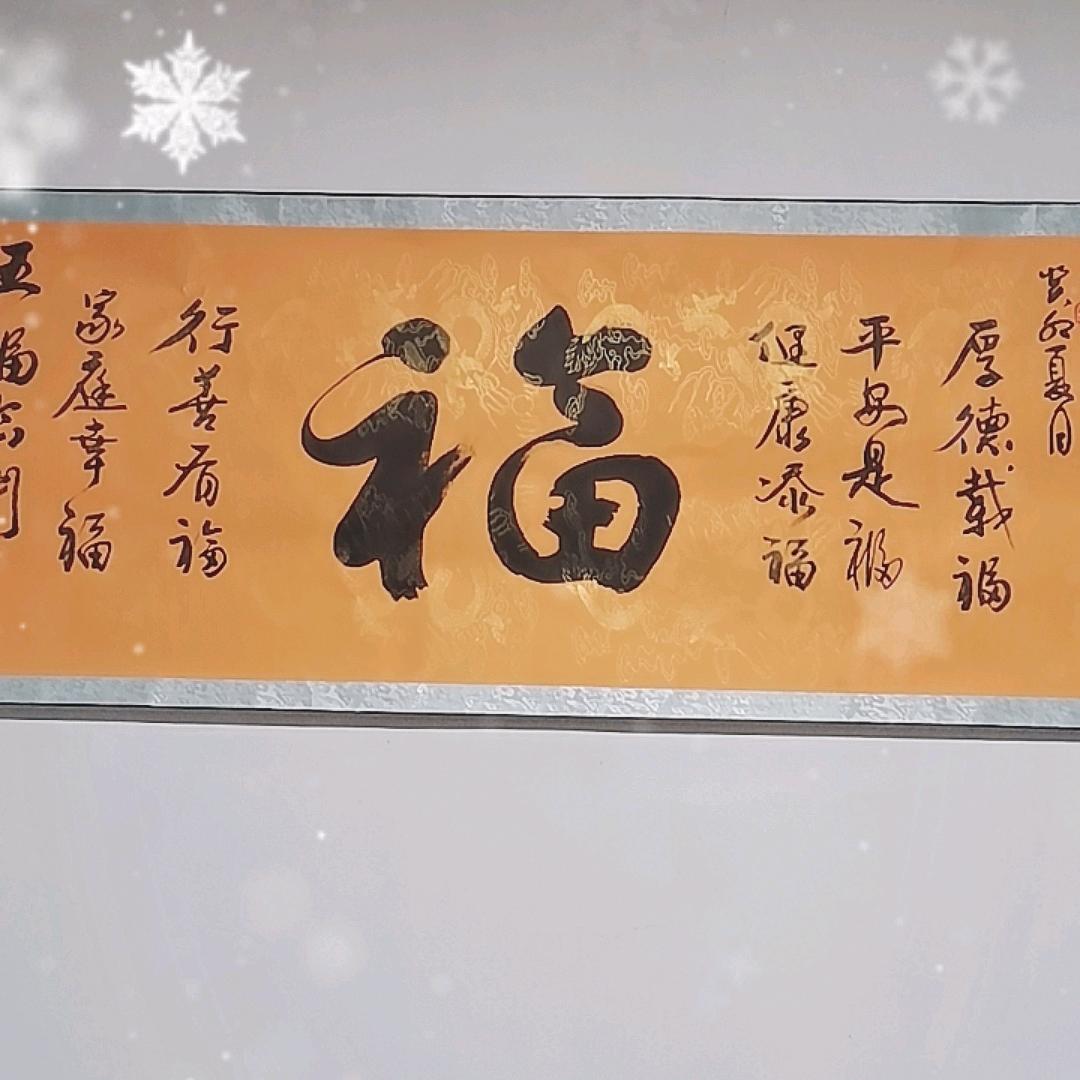 癸卯夏月
厚德载福
平安是福
健康添福
福
行善有福
家庭幸福
五福